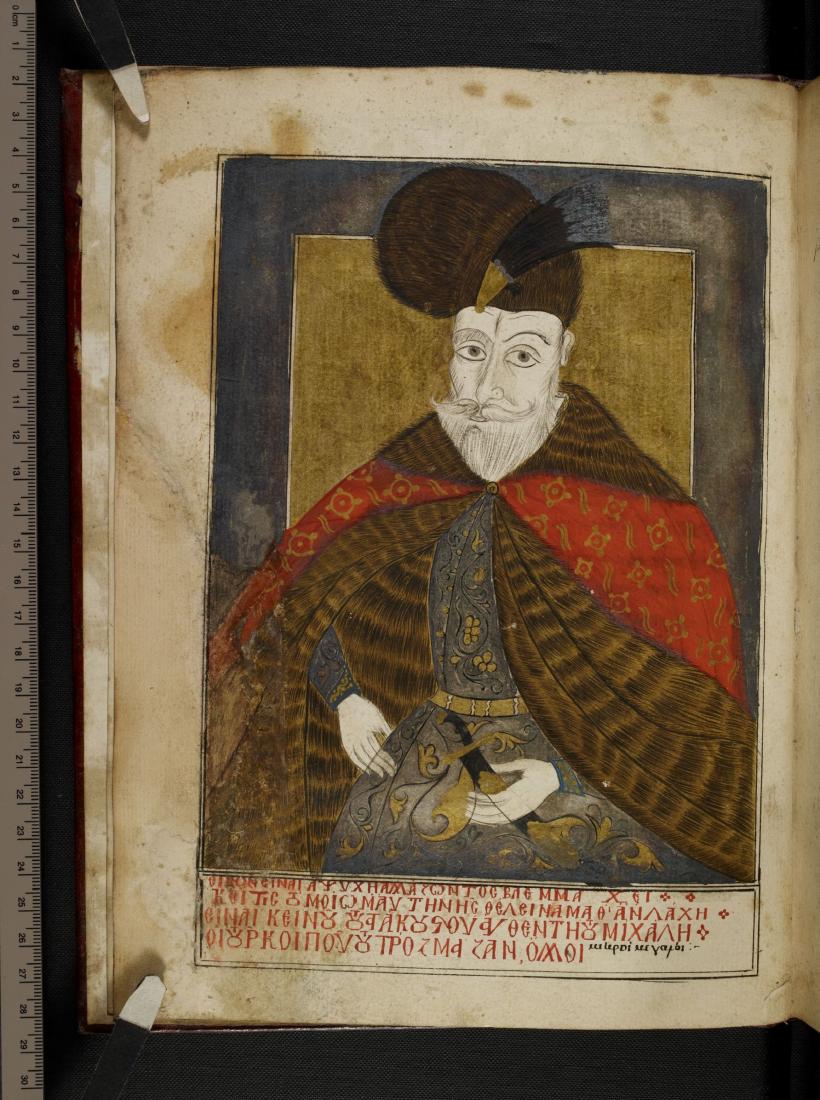 0 cm
1
2
3
4
5
6
7
8
9
10
11
12
13
14
15
16
17
18
19
20
21
22
23
24
25
26
27
28
29
30
ΕΙΝΑΙ ΑΨΥΧΗ ΑΛΛΑ ΖΩΝΤΟϹ ΒΛΕΜΜΑ ΧΕΙ
ΚΕΙ ΤΙϹ ȢΜΟΙΩΜΑ ΥΤΗΝΗϹ ΘΕΛΕΙ ΝΑ ΜΑΘ' ΑΝ ΛΑΧΗ
ΕΙΝΑΙ ΚΕΙΝȢ, ΑΥΘΕΝΤΗ Ȣ ΜΙΧΑΛΗ
ΟΙ ȢΡΚΟΙ ΠΟΥ ΟΛΟΙ μικροὶ μεγάλοι :-